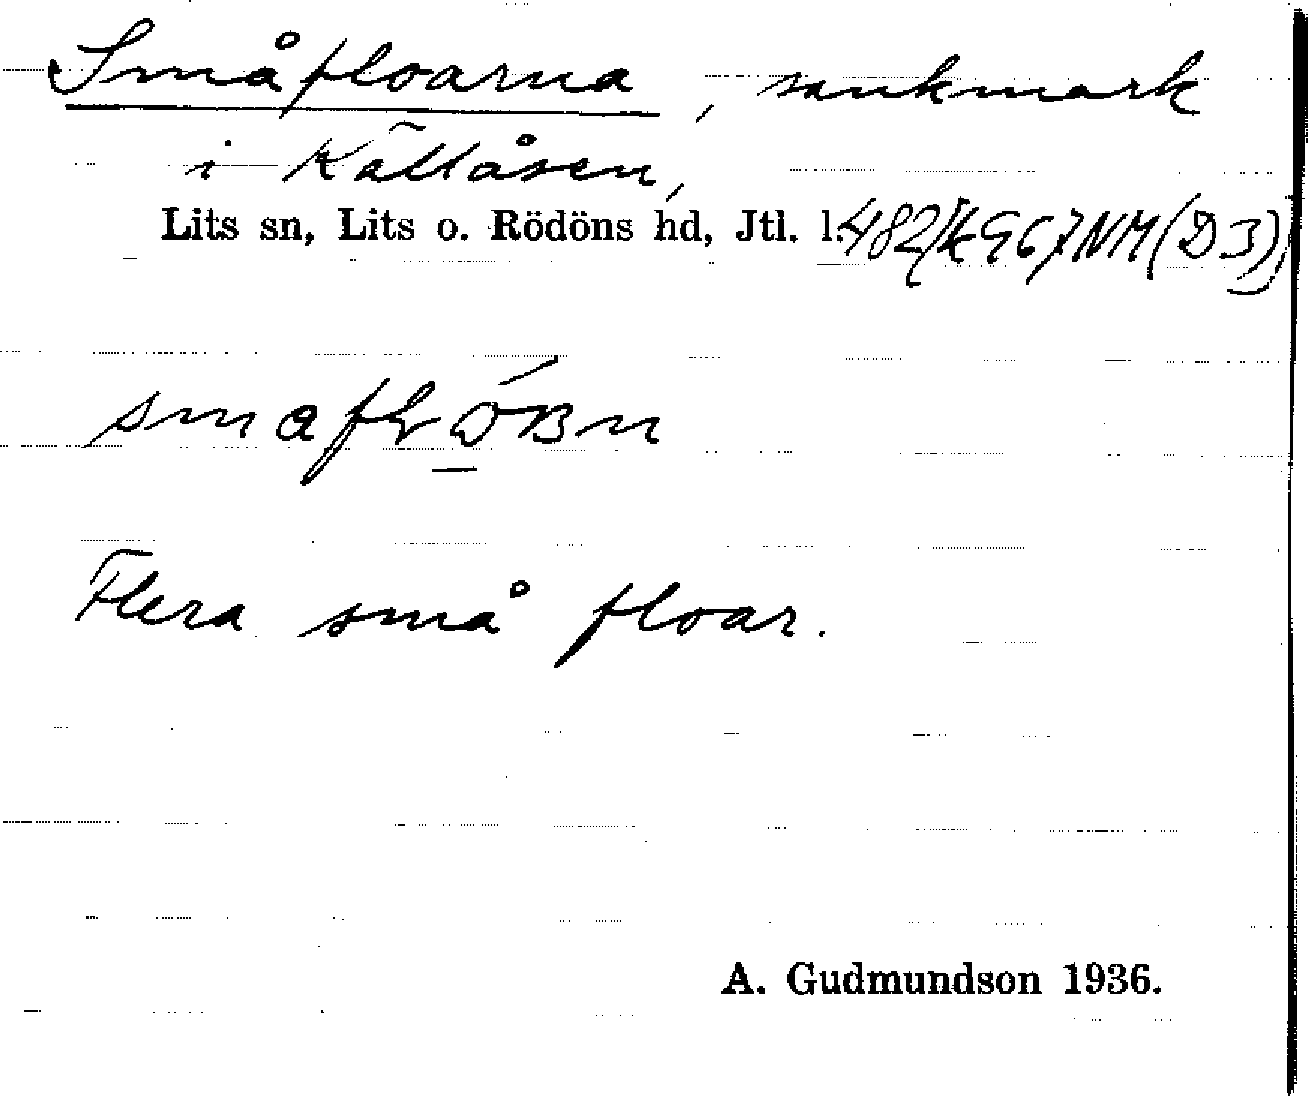 Småfloarna, sankmark
i Källåsen,
Lits sn, Lits o. Rödöns hd, Jtl. l.
Flera små floar.
A. Gudmundson 1936.